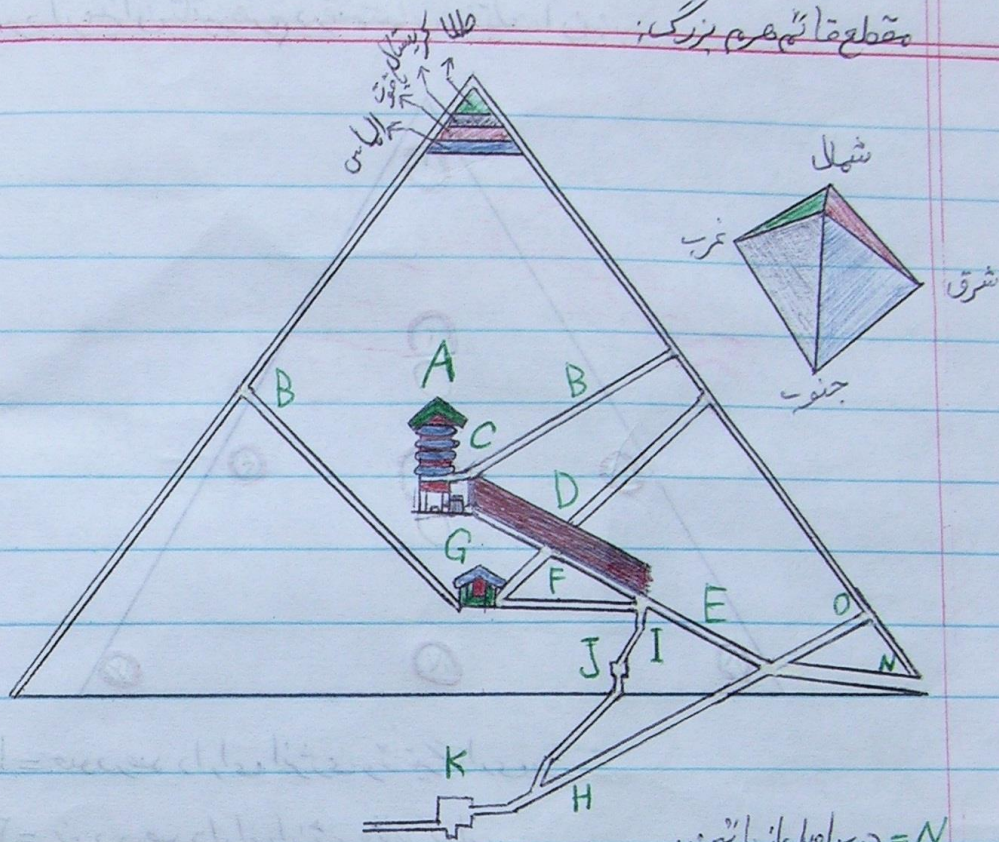 مقطع قائم هرم بزرگ:
طلا
کریستال
یاقوت
الماس
شمال
غرب
شرق
جنوب
A
B
B
C
D
G
F
E
O
I
J
N
K
H
N =